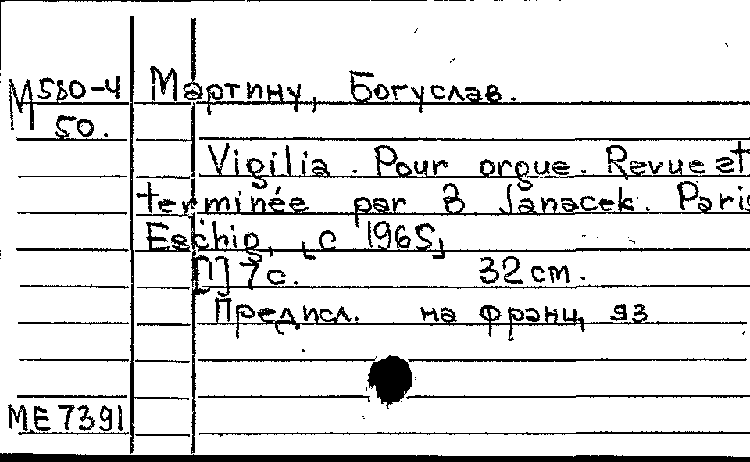 М580-4 Мартину, Богуслав.
50.
Vigilia. Pour orgue. Revue et
terminée par B. Janacek. Paris
Eschig, [c 1965]
[1] 7 с. 32 cm.
Предисл. на франц, яз
ME 7391